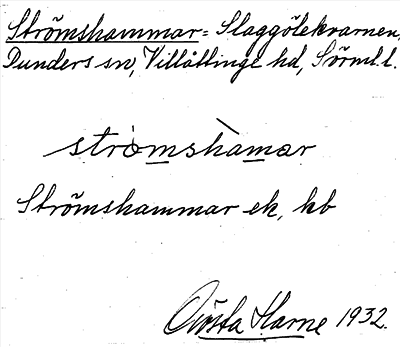 Strömshammar = Slaggölekvarnen,
Dunders sn, Villåttinge hd, Sörml. l.
strömshàmar
Strömshammar ek, kb
Gösta Harne 1932.